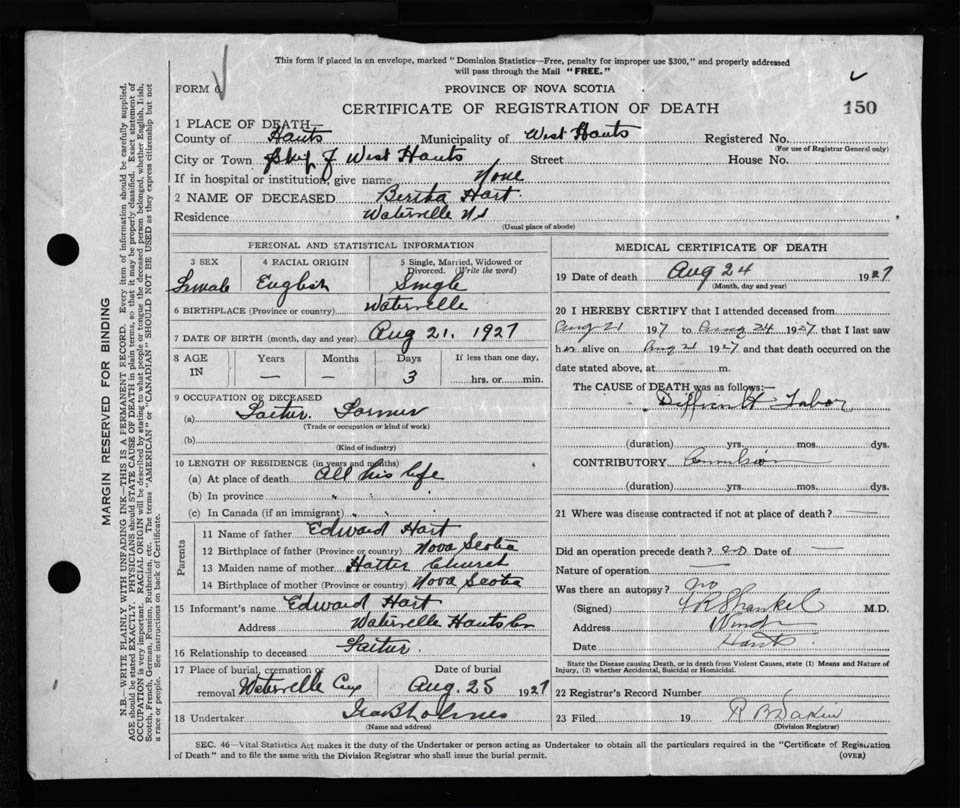 This form if placed in an envelope, marked "Dominion Statistics—Free, penalty for improper use $300," and properly addressed
will pass through the Mail "FREE."
FORM 6
PROVINCE OF NOVA SCOTIA
CERTIFICATE OF REGISTRATION OF DEATH
150
1 PLACE OF DEATH—
County of Hants Municipality of West Hants Registered No.
(For use of Registrar General only)
City or Town West Hants Street House No.
If in hospital or institution, give name None
2 NAME OF DECEASED Bertha Hart
Residence Waterville NS
(Usual place of abode)
PERSONAL AND STATISTICAL INFORMATION
3 SEX 4 RACIAL ORIGIN 5 Single, Married, Widowed or
Divorced. (Write the word)
Female English Single
6 BIRTHPLACE (Province or country) Waterville
7 DATE OF BIRTH (month, day and year) Aug 21, 1927
8 AGE IN Years Months Days If less than one day,
— — 3 hrs. or min.
9 OCCUPATION OF DECEASED
(a) Farmer
(Trade or occupation or kind of work)
(b)
(Kind of industry)
10 LENGTH OF RESIDENCE (in years and months)
(a) At place of death All his life
(b) In province " "
(c) In Canada (if an immigrant) " "
Parents
11 Name of father Edward Hart
12 Birthplace of father (Province or country) Nova Scotia
13 Maiden name of mother Church
14 Birthplace of mother (Province or country) Nova Scotia
15 Informant's name Edward Hart
Address Waterville Hants Co
16 Relationship to deceased
17 Place of burial, cremation or Date of burial
removal Waterville Aug. 25 1927
18 Undertaker
(Name and address)
MEDICAL CERTIFICATE OF DEATH
19 Date of death Aug 24 1927
(Month, day and year)
20 I HEREBY CERTIFY that I attended deceased from
Aug 21 1927 to Aug 24 1927 that I last saw
her alive on Aug 21 1927 and that death occurred on the
date stated above, at m.
The CAUSE of DEATH was as follows:—
Difficult Labor
(duration) yrs. mos. dys.
CONTRIBUTORY
(duration) yrs. mos. dys.
21 Where was disease contracted if not at place of death? —
Did an operation precede death? no Date of —
Nature of operation —
Was there an autopsy? no
(Signed) Shankel M.D.
Address
Date Hants
State the Disease causing Death, or in death from Violent Causes, state (1) Means and Nature of
Injury, (2) whether Accidental, Suicidal or Homicidal.
22 Registrar's Record Number
23 Filed 19
(Division Registrar)
SEC. 46—Vital Statistics Act makes it the duty of the Undertaker or person acting as Undertaker to obtain all the particulars required in the "Certificate of Registration
of Death" and to file the same with the Division Registrar who shall issue the burial permit. (OVER)
MARGIN RESERVED FOR BINDING
N.B.—WRITE PLAINLY WITH UNFADING INK—THIS IS A PERMANENT RECORD. Every item of information should be carefully supplied.
AGE should be stated EXACTLY. PHYSICIANS should STATE CAUSE OF DEATH in plain terms, so that it may be properly classified. Exact statement of
OCCUPATION is very important. RACIAL ORIGIN will be described by stating to what people or tongue the deceased person belonged, whether English, Irish,
Scotch, French, German, Russian, Ruthenian, etc. The terms "AMERICAN" or "CANADIAN" SHOULD NOT BE USED as they express citizenship but not
a race or people. See instructions on back of Certificate.